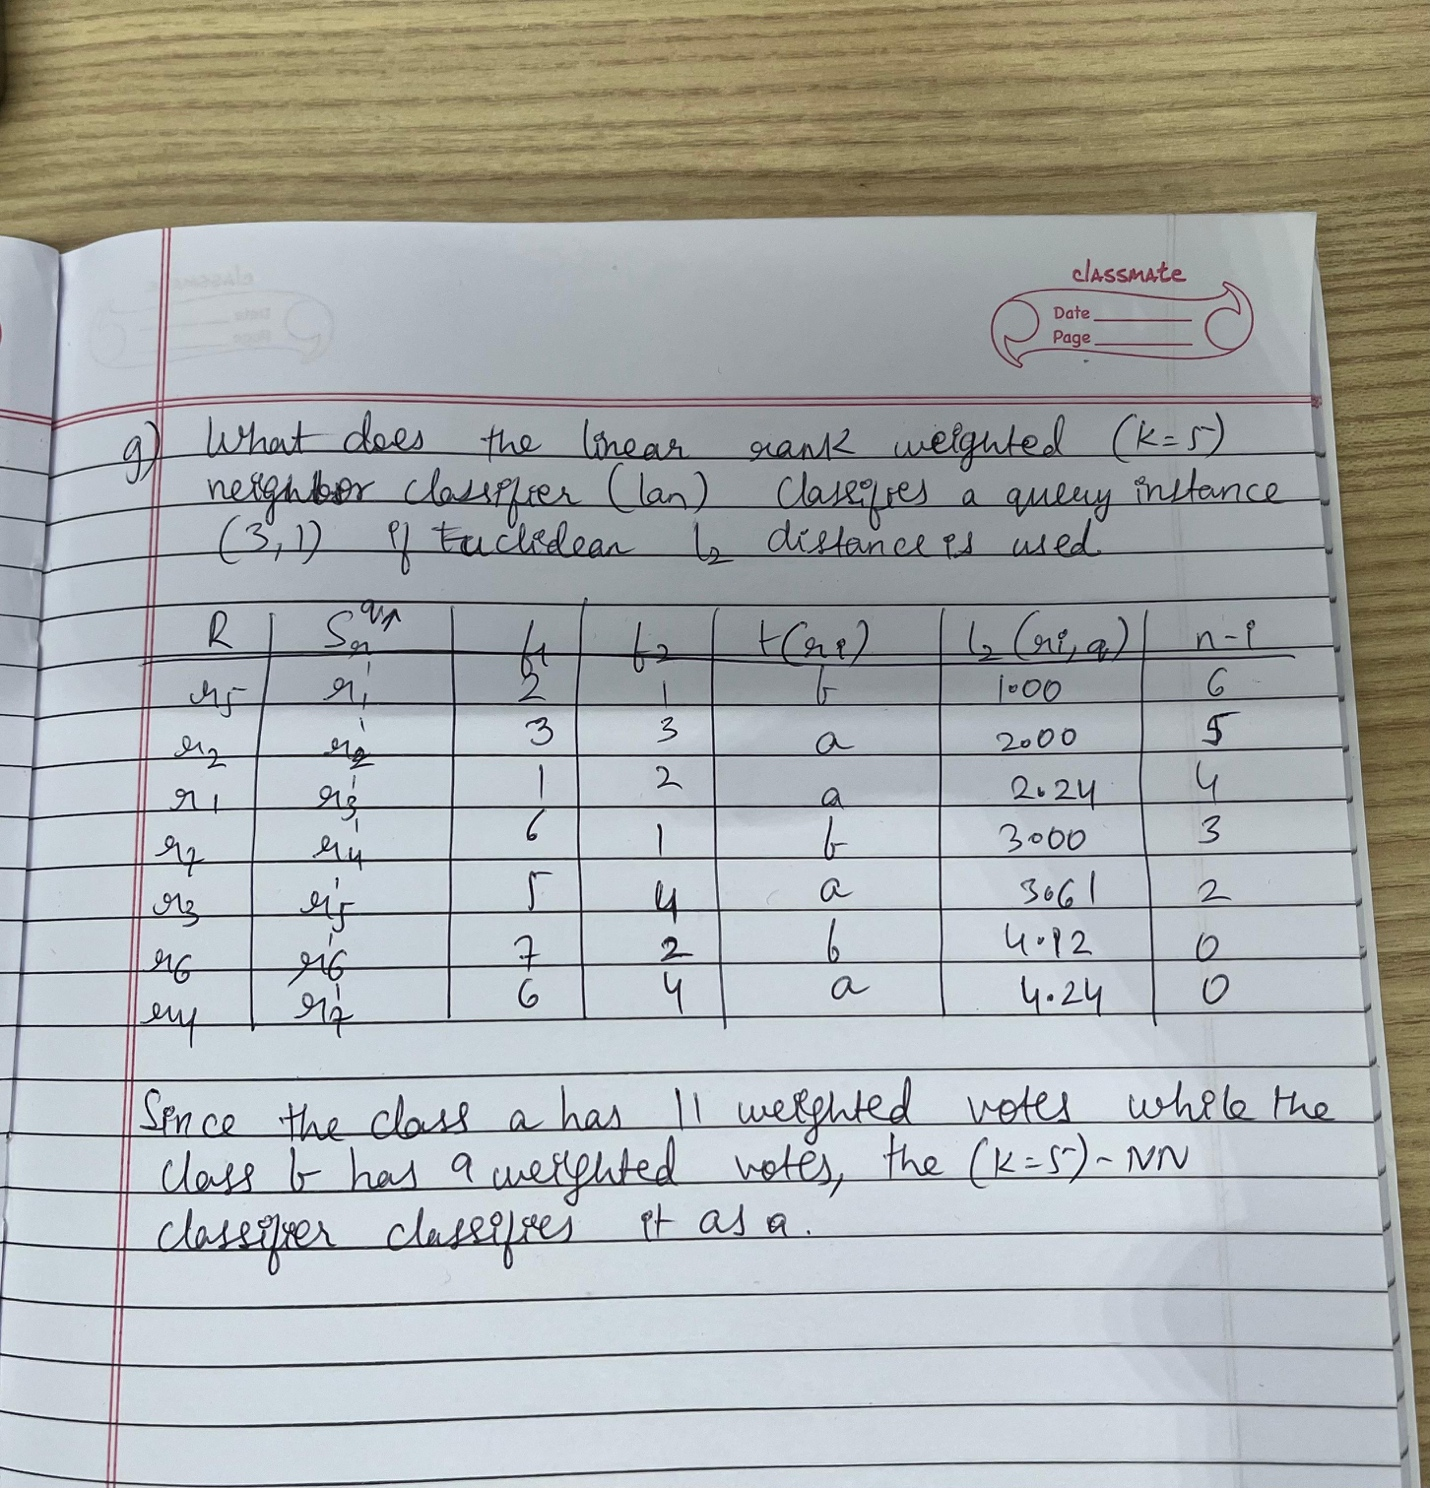 classmate
Date
Page
g) What does the linear rank weighted (k=5)
neighbor classifier (lan) classifies a query instance
(3,1) if Euclidean l2 distance is used
R f1 f2 t(ri) l2 (ri,q) n-i
r5 r1' 2 1 b 1.00 6
r2 r2' 3 3 a 2.00 5
r1 r3' 1 2 a 2.24 4
r7 r4' 6 1 b 3.00 3
r3 r5' 5 4 a 3.61 2
r6 r6' 7 2 b 4.12 0
r4 r7' 6 4 a 4.24 0
Since the class a has 11 weighted votes while the
class b has 9 weighted votes, the (k=5)-NN
classifier classifies it as a.